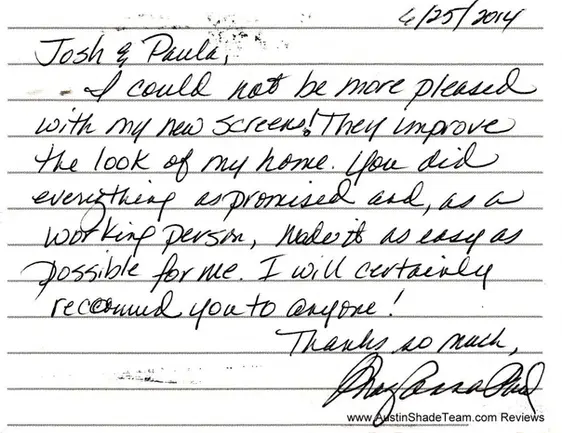 6/25/2014
Josh & Paula,
I could not be more pleased
with my new screens! They improve
the look of my home. You did
everything as promised and, as a
working person, made it as easy as
possible for me. I will certainly
recommend you to anyone!
Thanks so much,
www.AustinShadeTeam.com Reviews